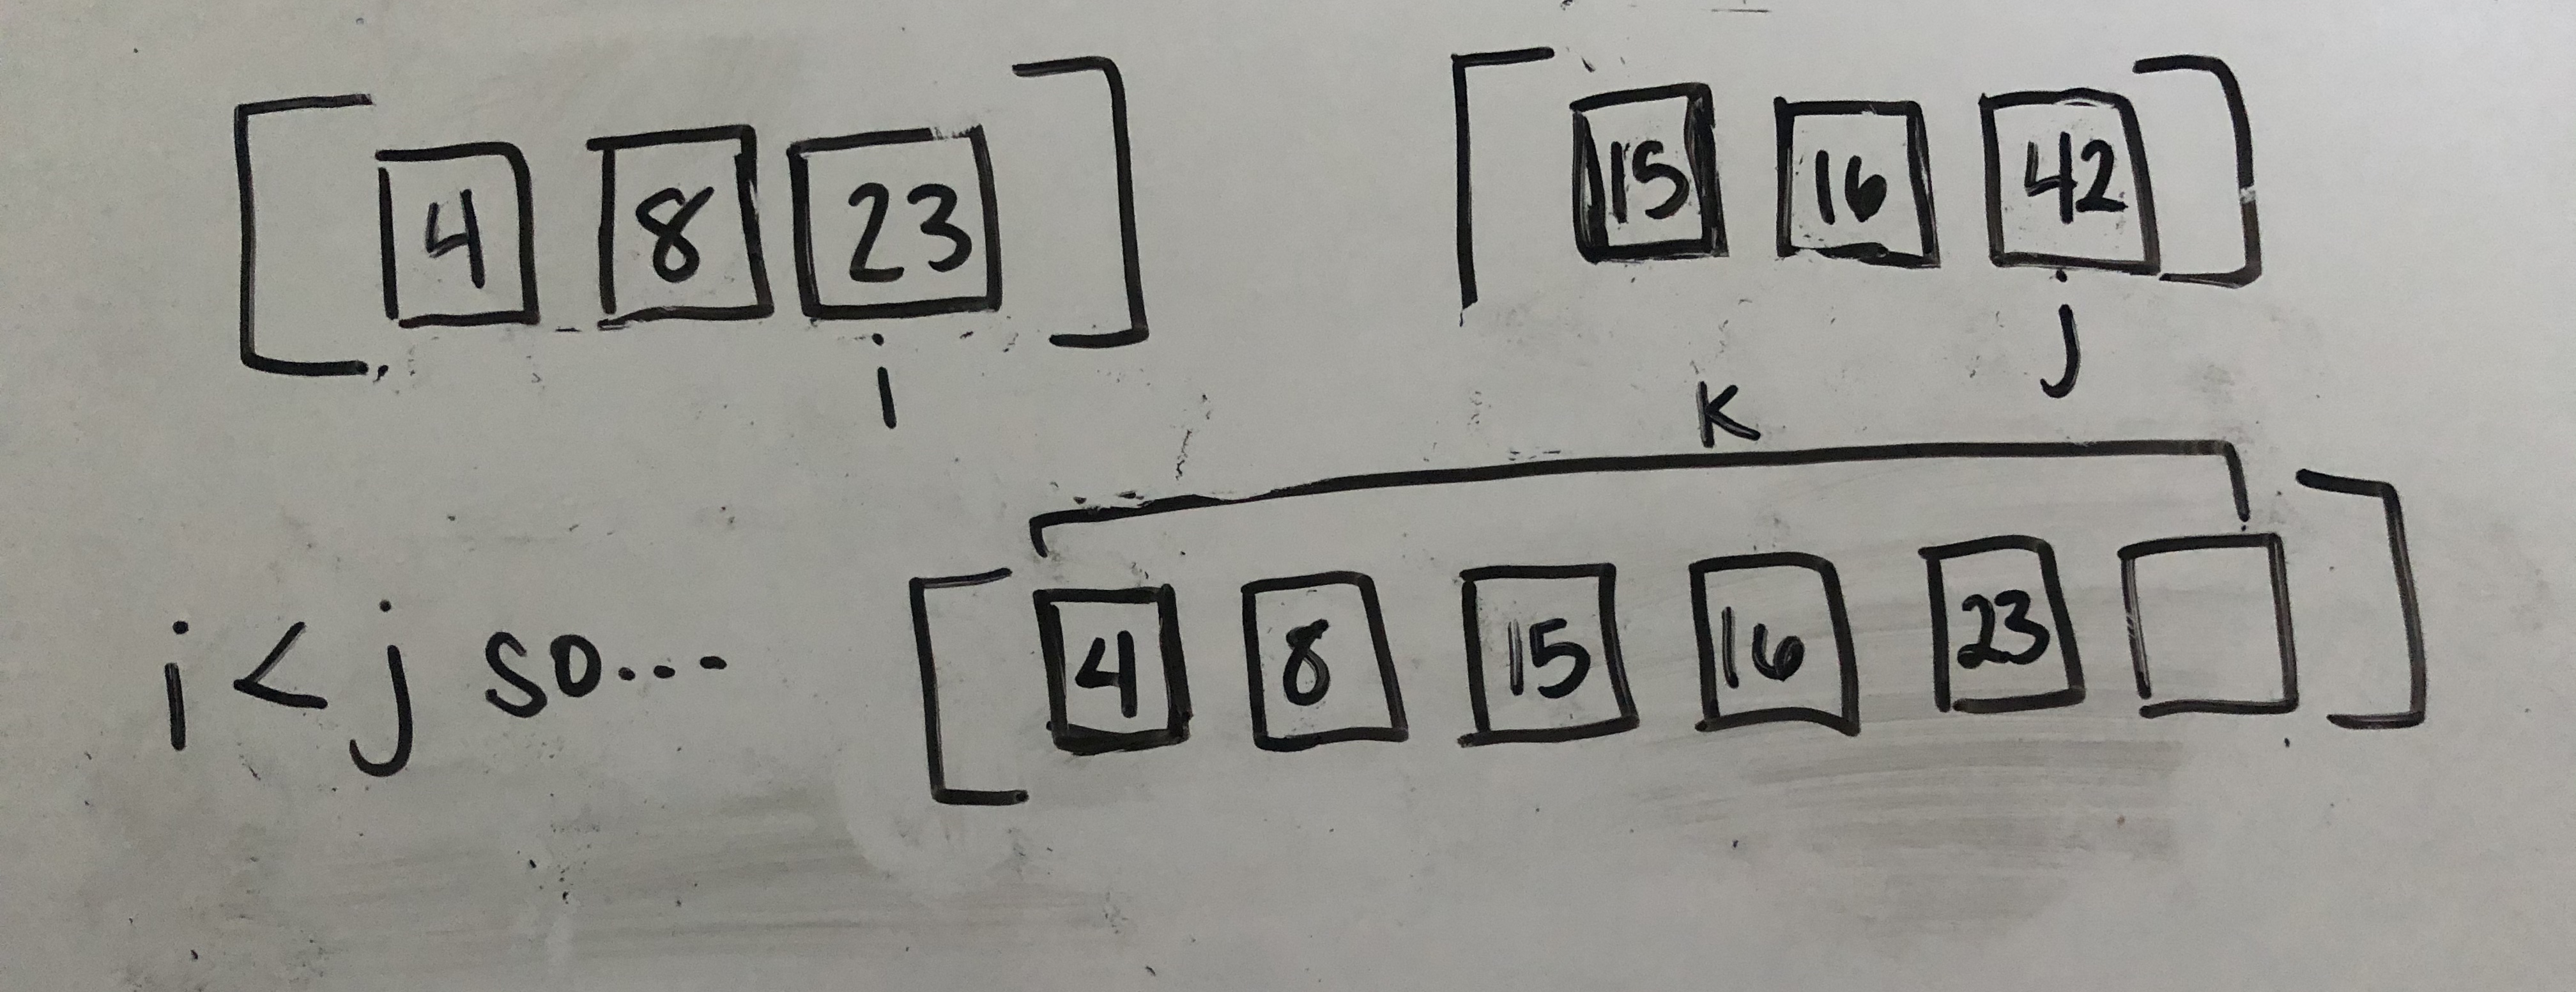 [ 4 8 23 ] [ 15 16 42 ]
i j
K
i < j so... [ 4 8 15 16 23 ]